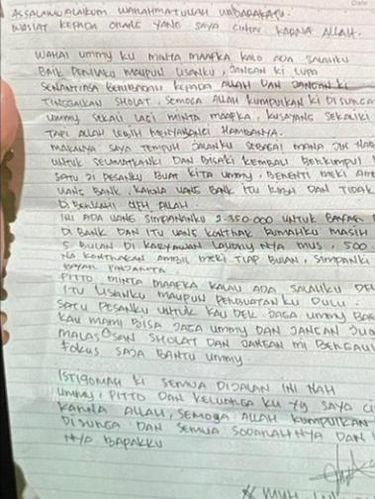 ASSALAMU ALAIKUM WARAHMATULLAH WABARAKATU.
WASIAT KEPADA ORANG YANG SAYA CINTAI KARNA ALLAH.
WAHAI UMMY KU MINTA MAAFKA KALO ADA SALAHKU
BAIK PERILAKU MAUPUN LISANKU, JANGAN KI LUPA
SENANTIASA BERIBADAH KEPADA ALLAH DAN JANGAN KI
TINGGALKAN SHOLAT, SEMOGA ALLAH KUMPULKAN KI DI SURGA
UMMY SEKALI LAGI MINTA MAAFKA, KUSAYANG SEKALIKI
TAPI ALLAH LEBIH MENYAYANGI HAMBANYA.
MAKANYA SAYA TEMPUH JALANKU SEBAGAI MANA
UNTUK SELAMATKANKI DAN BISAKI KEMBALI BERKUMPUL
SATU JI PESANKU BUAT KITA UMMY, BERENTI MEKI
UANG BANK, KARNA UANG BANK ITU DAN TIDAK
DIBERKAHI OLEH ALLAH.
INI ADA UANG SIMPANANKU 2.350.000 UNTUK
DI BANK DAN ITU UANG KONTRAK RUMAHKU MASIH
5 BULAN DI KARYAWAN NYA MUS, 500
NA KONTRAKAN AMBIL MEKI TIAP BULAN, SIMPANKI
BAYAR
PITTO MINTA MAAFKA KALAU ADA SALAHKU
ITU LISANKU MAUPUN PERBUATANKU DULU.
SATU PESANKU UNTUK KAU DEK JAGA UMMY
KAU MAMI BISA JAGA UMMY DAN JANGAN
MALAS SHOLAT DAN JANGAN MI
FOKUS SAJA BANTU UMMY.
ISTIQOMAH KI SEMUA DIJALAN INI NAH
UMMY, PITTO DAN KELUARGA KU YG SAYA
KARNA ALLAH, SEMOGA ALLAH KUMPULKAN
DISURGA DAN SEMUA SODARAHNYA DAN
NYA BAPAKKU
MUH